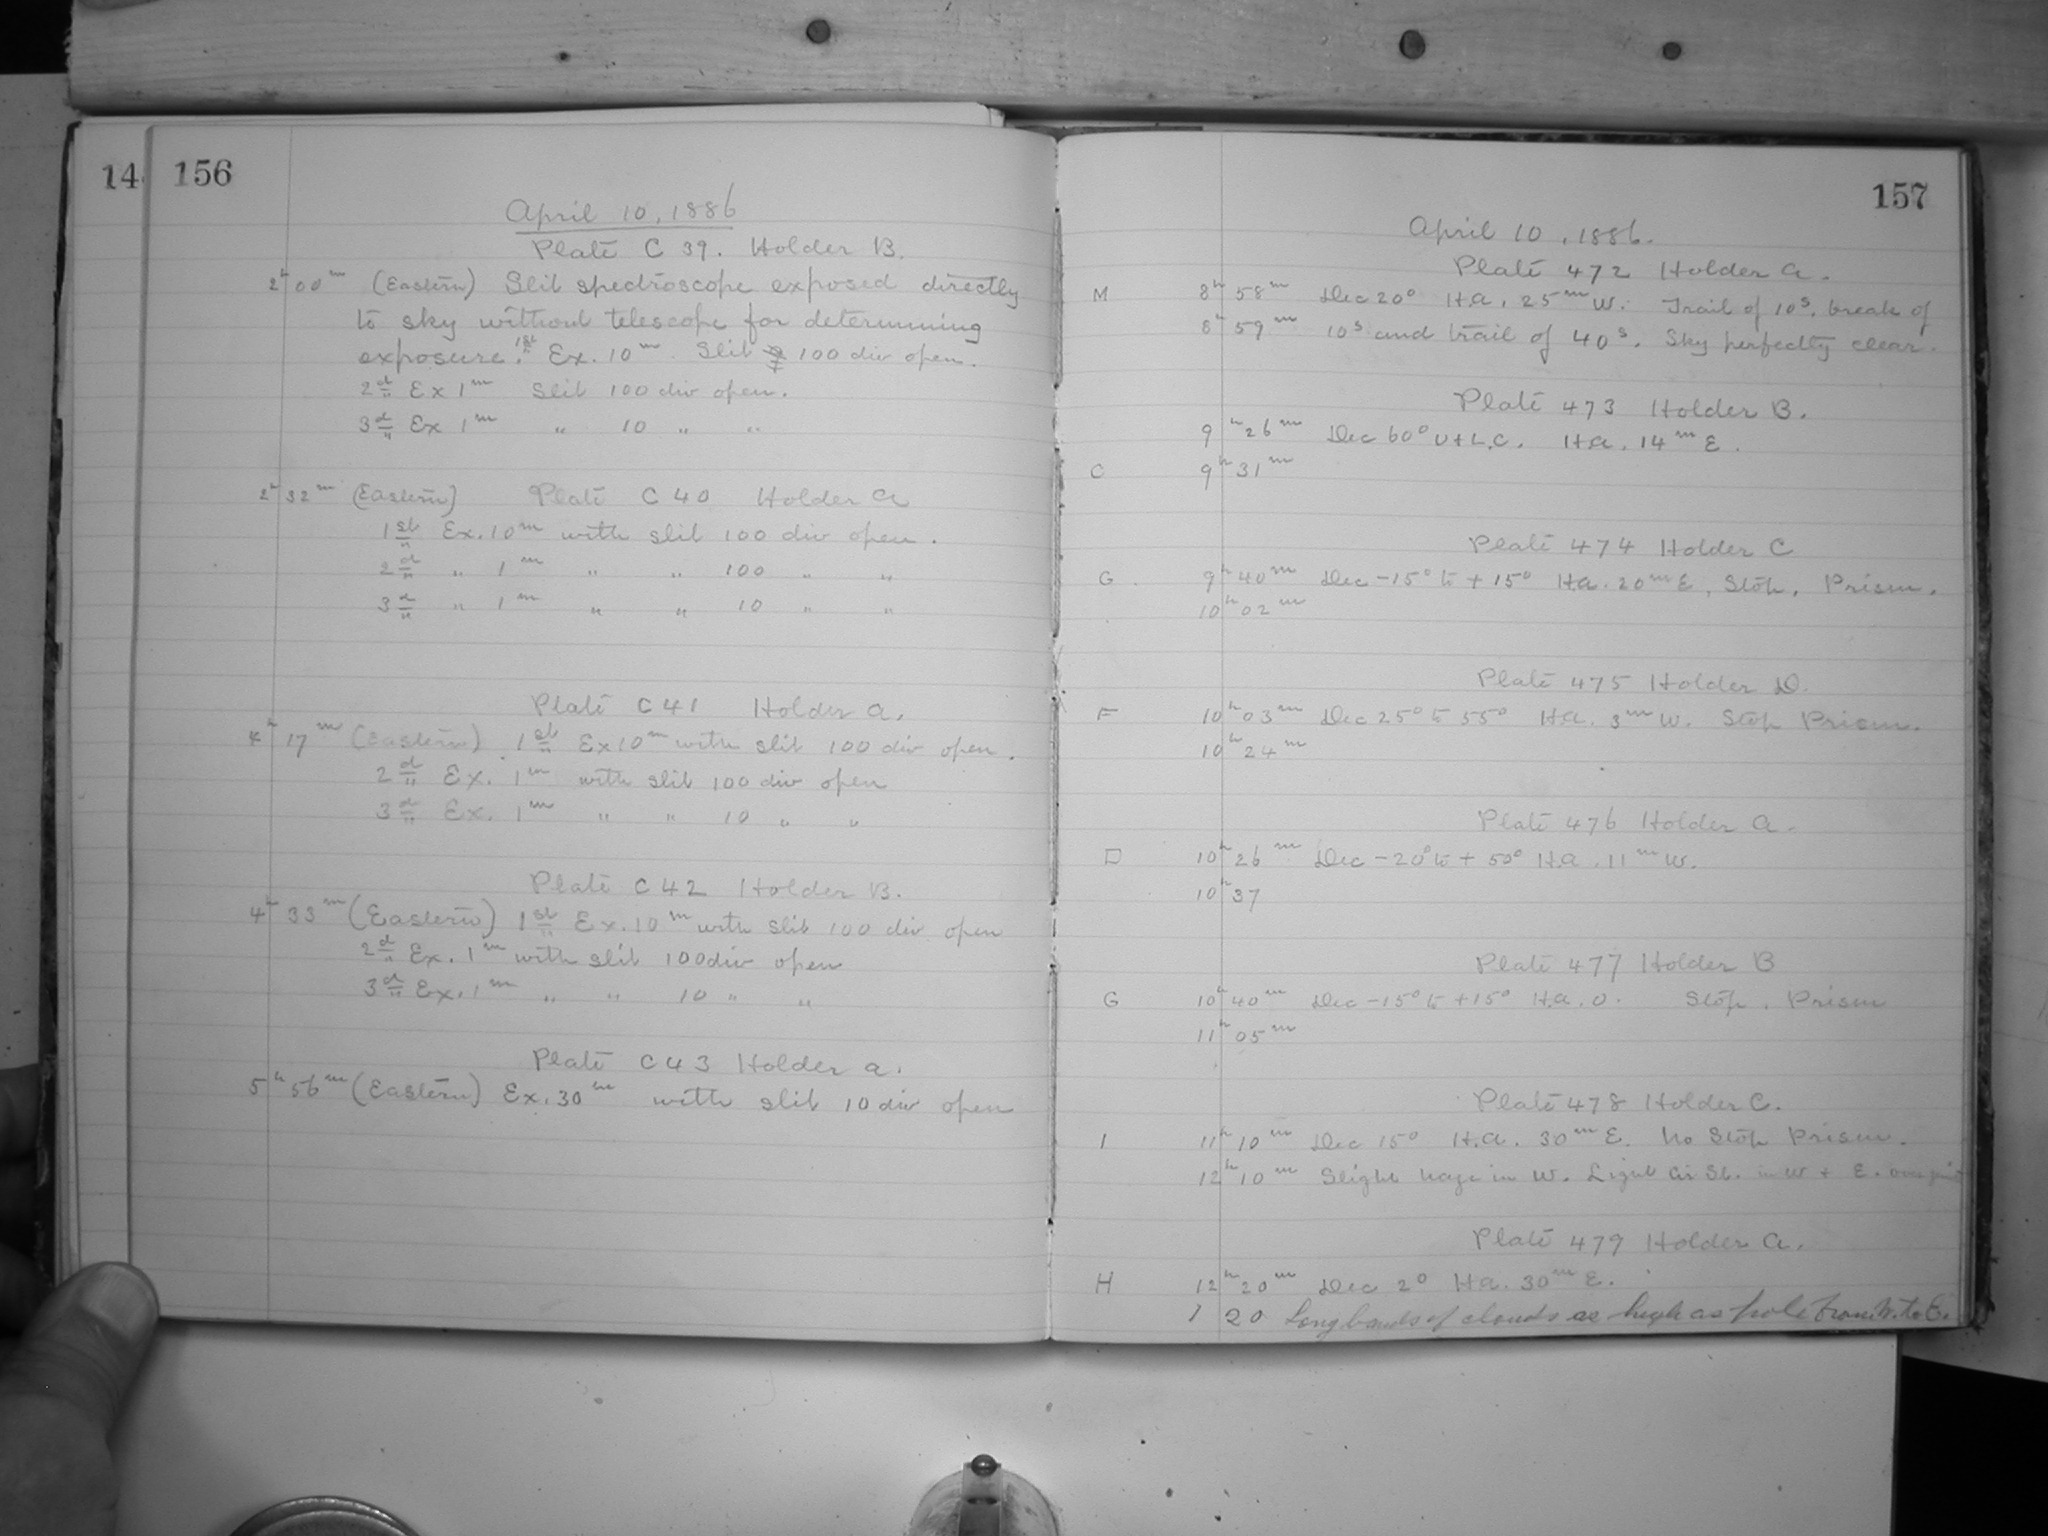 14
156
April 10, 1886
Plate C 39. Holder B.
2h 00m (Eastern) Slit spectroscope exposed directly
to sky without telescope for determining
exposure. 1st Ex. 10m Slit 100 div open.
2d Ex 1m Slit 100 div open.
3d Ex 1m " 10 " "
2h 32m (Eastern) Plate C 40 Holder A
1st Ex. 10m with slit 100 div open.
2d " 1m " " 100 " "
3d " 1m " " 10 " "
Plate C 41 Holder A.
4h 17m (Eastern) 1st Ex 10m with slit 100 div open.
2d Ex. 1m with slit 100 div open
3d Ex. 1m " " 10 " "
Plate C 42 Holder B.
4h 33m (Eastern) 1st Ex. 10m with slit 100 div open
2d Ex. 1m with slit 100 div open
3d Ex. 1m " " 10 " "
Plate C 43 Holder A.
5h 56m (Eastern) Ex. 30m with slit 10 div open
157
April 10, 1886.
Plate 472 Holder A.
M 8h 58m Dec 20° H.A. 25m W. Trail of 10s, break of
8h 59m 10s and trail of 40s. Sky perfectly clear.
Plate 473 Holder B.
9h 26m Dec 60° U + L.C. H.A. 14m E.
C 9h 31m
Plate 474 Holder C
G. 9h 40m Dec -15° to +15° H.A. 20m E, Stop, Prism.
10h 02m
Plate 475 Holder D.
F 10h 03m Dec 25° to 55° H.A. 3m W. Stop Prism.
10h 24m
Plate 476 Holder A.
D 10h 26m Dec -20° to + 50° H.A. 11m W.
10h 37
Plate 477 Holder B
G 10h 40m Dec -15° to +15° H.A. 0. Stop, Prism
11h 05m
Plate 478 Holder C.
I 11h 10m Dec 15° H.A. 30m E. No Stop Prism.
12h 10m Slight haze in W. Light Cir St. in W + E.
Plate 479 Holder A.
H 12h 20m Dec 2° H.A. 30m E.
1 20 Long bands of clouds as high as pole from W. to E.